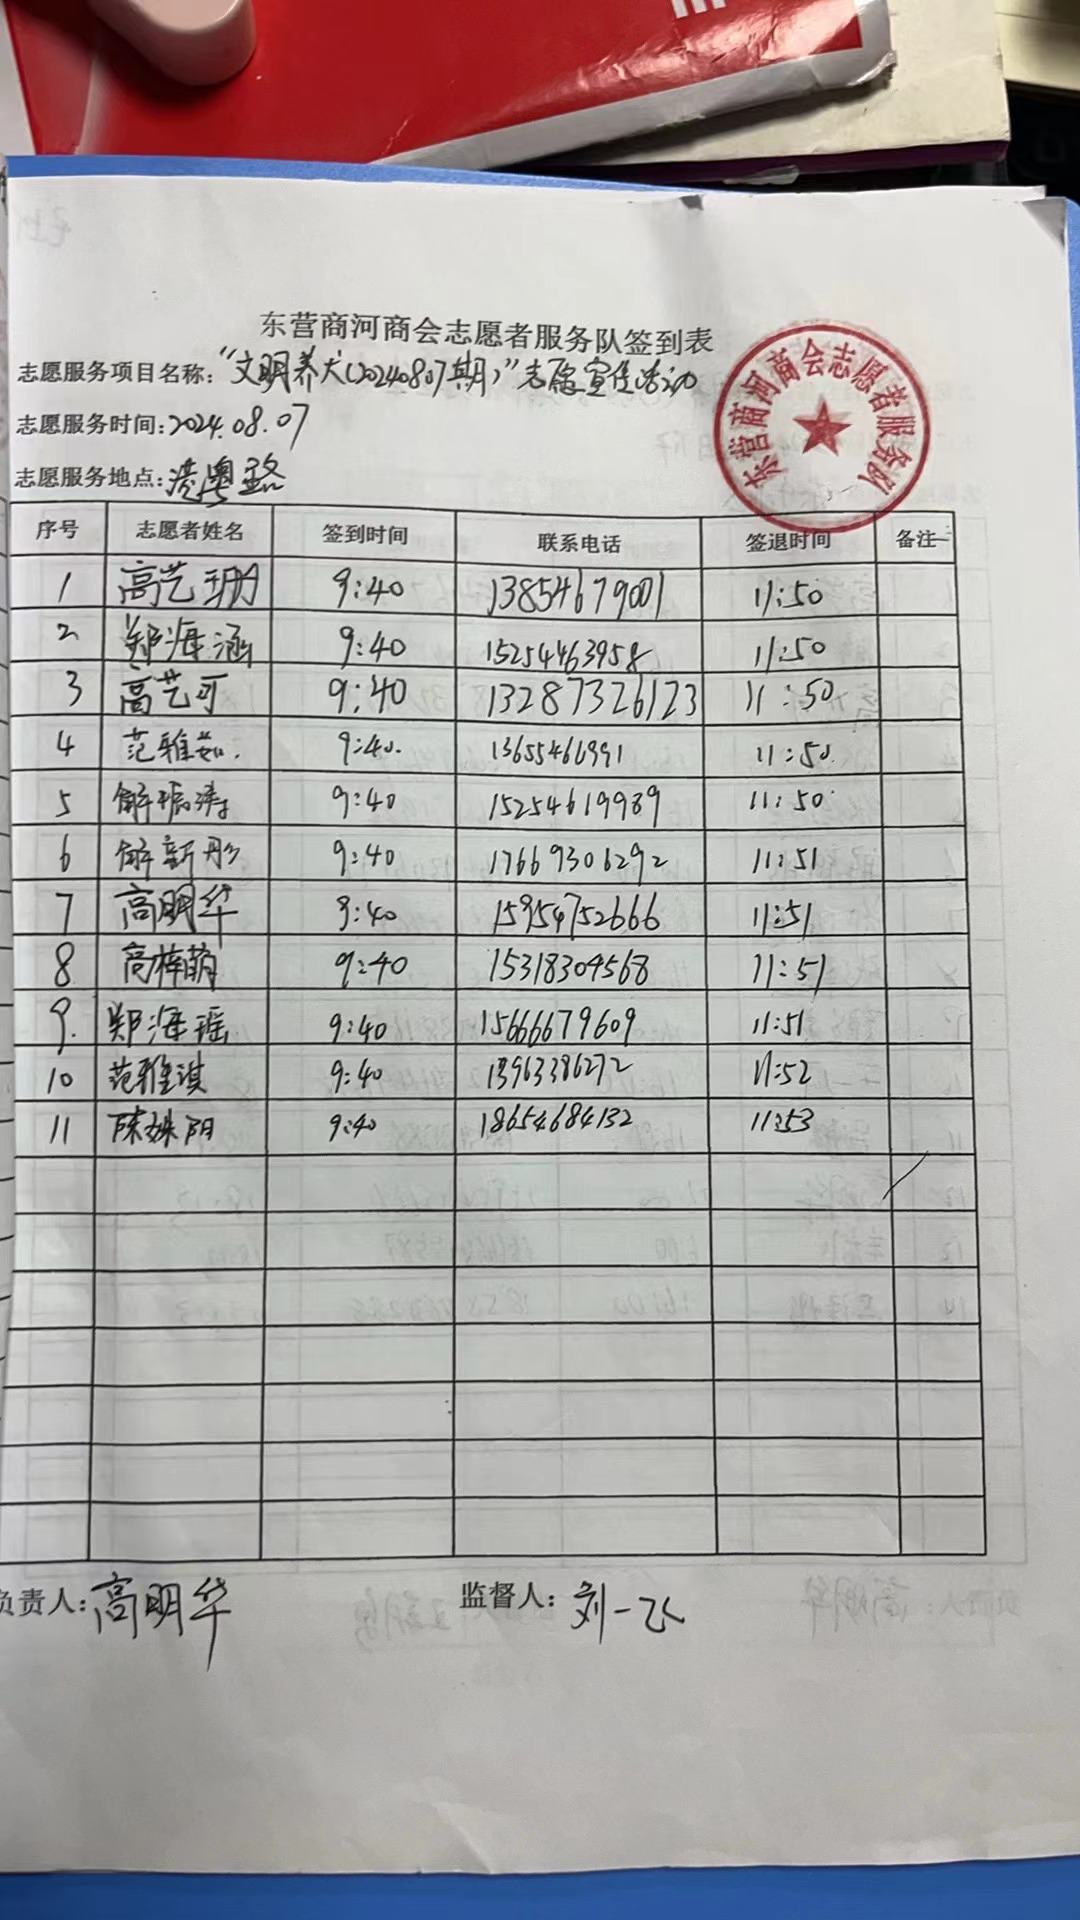 东营商河商会志愿者服务队签到表
志愿服务项目名称:“文明养犬(20240807期)”志愿宣传活动
志愿服务时间:2024.08.07
志愿服务地点:港粤路
东营商河商会志愿者服务队
序号 志愿者姓名 签到时间 联系电话 签退时间 备注
1 高艺珊 9:40 13854679001 11:50
2 郑海涵 9:40 15254463958 11:50
3 高艺可 9:40 13287326123 11:50
4 范雅茹. 9:40. 13655466991 11:50.
5 解振涛 9:40 15254619989 11:50
6 解新彤 9:40 17669306292 11:51
7 高明华 9:40 15954752666 11:51
8 高梓萌 9:40 15318304568 11:51
9. 郑海瑶 9:40 15666679609 11:51
10 范雅淇 9:40 13963386272 11:52
11 陈姝阳 9:40 18654684132 11:53
负责人:高明华 监督人:刘一飞